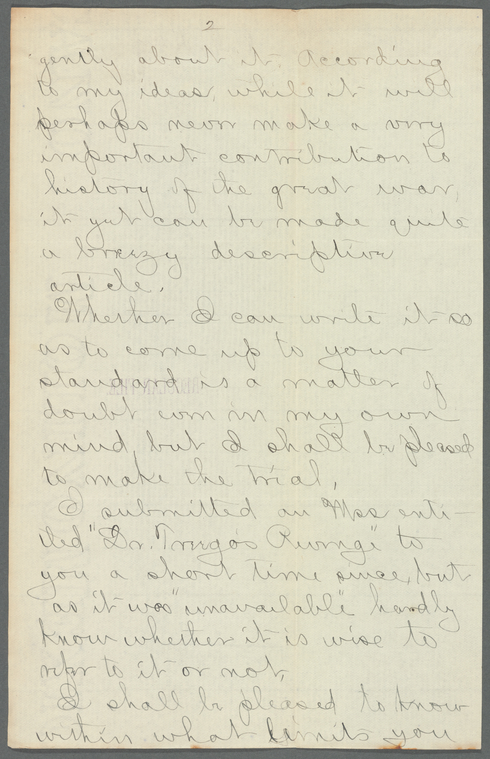 2
gently about it. According
to my ideas, while it will
perhaps never make a very
important contribution to
history of the great war,
it yet can be made quite
a breezy descriptive
article.
Whether I can write it so
as to come up to your
standard is a matter of
doubt even in my own
mind, but I shall be pleased
to make the trial,
I submitted an Mss enti-
tled "Dr. Revenge" to
you a short time since, but
as it was "unavailable" hardly
know whether it is wise to
refer to it or not.
I shall be pleased to know
within what limits you